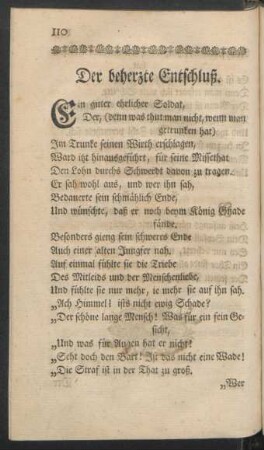 110
Der beherzte Entschluß.
Ein guter ehrlicher Soldat,
Der, (denn was thut man nicht, wenn man
getrunken hat)
Im Trunke seinen Wirth erschlagen,
Ward itzt hinausgeführt, für seine Missethat
Den Lohn durchs Schwerdt davon zu tragen.
Er sah wohl aus, und wer ihn sah,
Bedauerte sein schmählich Ende,
Und wünschte, daß er noch beym König Gnade
fände.
Besonders gieng sein schweres Ende
Auch einer alten Jungfer nah.
Auf einmal fühlte sie die Triebe
Des Mitleids und der Menschenliebe,
Und fühlte sie nur mehr, ie mehr sie auf ihn sah.
„Ach Himmel! ists nicht ewig Schade?
„Der schöne lange Mensch! Was für ein fein Ge-
sicht,
„Und was für Augen hat er nicht?
„Seht doch den Bart! Ist das nicht eine Wade!
„Die Straf ist in der That zu groß,
„Wer